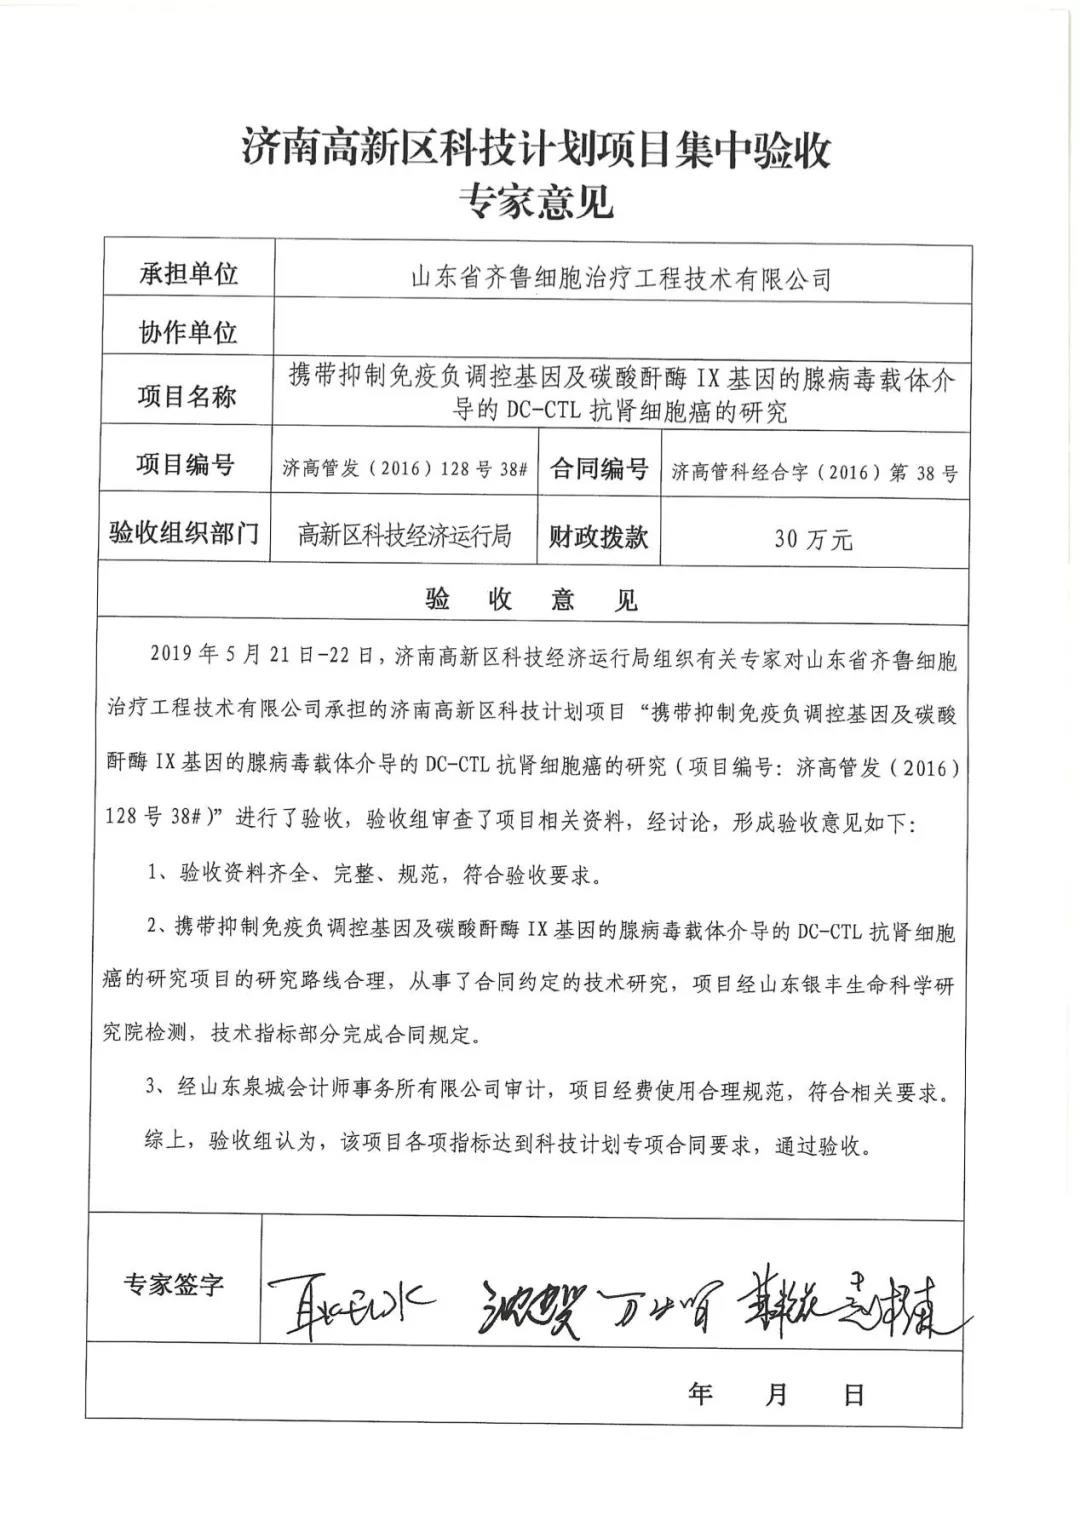 济南高新区科技计划项目集中验收
专家意见
承担单位 山东省齐鲁细胞治疗工程技术有限公司
协作单位
项目名称 携带抑制免疫负调控基因及碳酸酐酶 IX 基因的腺病毒载体介
导的 DC-CTL 抗肾细胞癌的研究
项目编号 济高管发（2016）128 号 38# 合同编号 济高管科经合字（2016）第 38 号
验收组织部门 高新区科技经济运行局 财政拨款 30 万元
验 收 意 见
2019 年 5 月 21 日-22 日，济南高新区科技经济运行局组织有关专家对山东省齐鲁细胞
治疗工程技术有限公司承担的济南高新区科技计划项目“携带抑制免疫负调控基因及碳酸
酐酶 IX 基因的腺病毒载体介导的 DC-CTL 抗肾细胞癌的研究（项目编号：济高管发（2016）
128 号 38#）”进行了验收，验收组审查了项目相关资料，经讨论，形成验收意见如下：
1、验收资料齐全、完整、规范，符合验收要求。
2、携带抑制免疫负调控基因及碳酸酐酶 IX 基因的腺病毒载体介导的 DC-CTL 抗肾细胞
癌的研究项目的研究路线合理，从事了合同约定的技术研究，项目经山东银丰生命科学研
究院检测，技术指标部分完成合同规定。
3、经山东泉城会计师事务所有限公司审计，项目经费使用合理规范，符合相关要求。
综上，验收组认为，该项目各项指标达到科技计划专项合同要求，通过验收。
专家签字
年 月 日